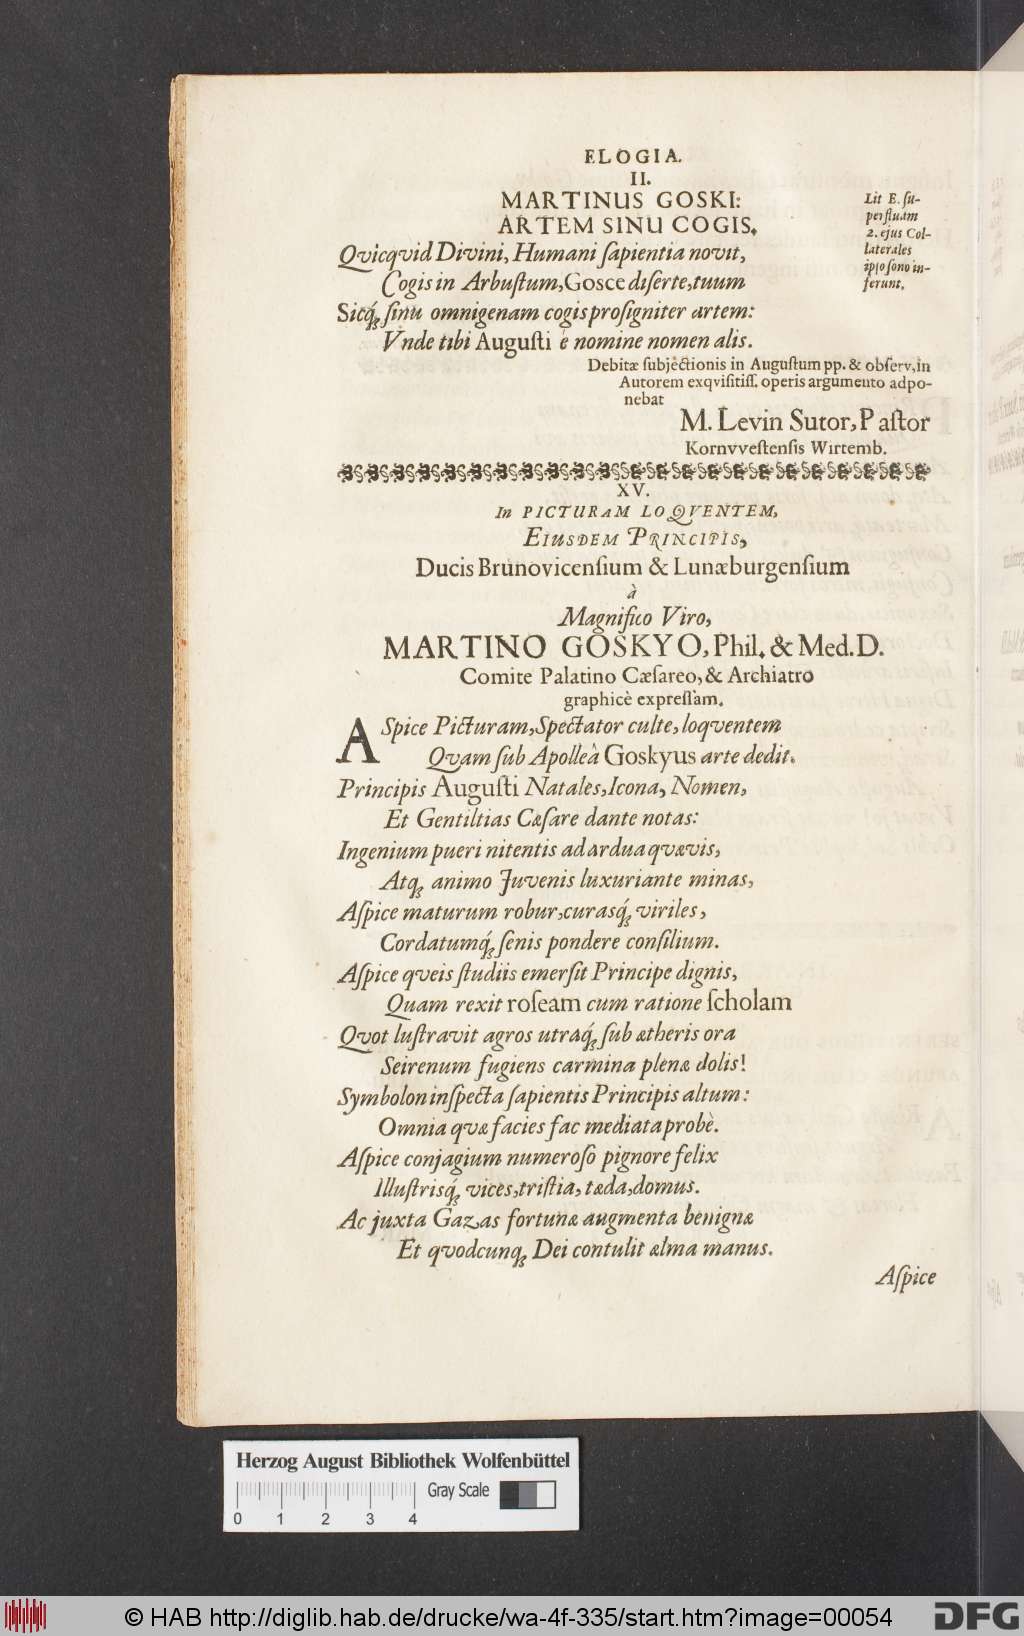 ELOGIA.
II.
MARTINUS GOSKI:
ARTEM SINU COGIS.
Lit E. ſu-
perſluam
2. ejus Col-
laterales
ipſo ſono in-
ferunt.
Qvicqvid Divini, Humani ſapientia novit,
Cogis in Arbuſtum, Gosce diſerte, tuum
Sicq́; ſinu omnigenam cogis proſigniter artem:
Vnde tibi Auguſti è nomine nomen alis.
Debitæ ſubjectionis in Auguſtum pp. & obſerv, in
Autorem exqviſitiſſ. operis argumento adpo-
nebat
M. Levin Sutor, Paſtor
Kornvveſtenſis Wirtemb.
XV.
In PICTURAM LOQVENTEM,
EIUSDEM PRINCIPIS,
Ducis Brunovicenſium & Lunæburgenſium
à
Magnifico Viro,
MARTINO GOSKYO, Phil. & Med. D.
Comite Palatino Cæſareo, & Archiatro
graphicè expreſſam.
ASpice Picturam, Spectator culte, loqventem
Qvam ſub Apolleà Goskyus arte dedit.
Principis Auguſti Natales, Icona, Nomen,
Et Gentiltias Cæſare dante notas:
Ingenium pueri nitentis ad ardua qvævis,
Atq; animo Juvenis luxuriante minas,
Aſpice maturum robur, curasq́; viriles,
Cordatumq́; ſenis pondere conſilium.
Aſpice qveis ſtudiis emerſit Principe dignis,
Quam rexit roſeam cum ratione ſcholam
Qvot luſtravit agros utraq́; ſub ætheris ora
Seirenum fugiens carmina plenæ dolis!
Symbolon inſpecta ſapientis Principis altum:
Omnia qvæ facies fac mediata probè.
Aſpice conjagium numeroſo pignore felix
Illuſtrisq́; vices, triſtia, tæda, domus.
Ac juxta Gazas fortunæ augmenta benignæ
Et qvodcunq; Dei contulit alma manus.
Aſpice
Herzog August Bibliothek Wolfenbüttel
Gray Scale
0 1 2 3 4
© HAB http://diglib.hab.de/drucke/wa-4f-335/start.htm?image=00054
DFG